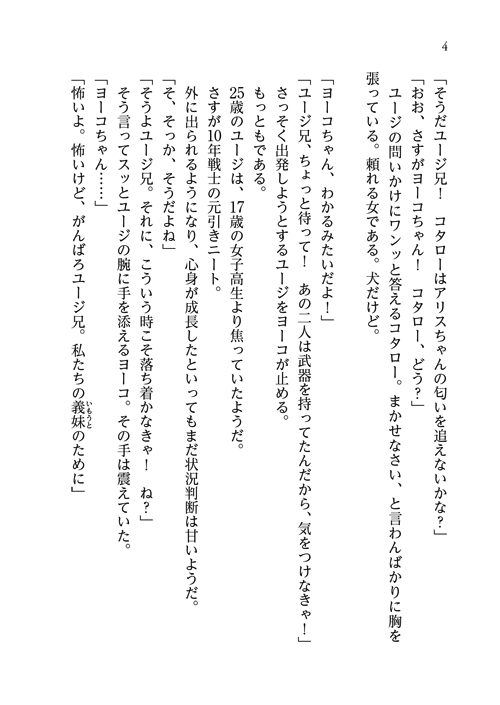 4
「そうだユージ兄！　コタローはアリスちゃんの匂いを追えないかな？」
「おお、さすがヨーコちゃん！　コタロー、どう？」
　ユージの問いかけにワンッと答えるコタロー。まかせなさい、と言わんばかりに胸を
張っている。頼れる女である。犬だけど。
「ヨーコちゃん、わかるみたいだよ！」
「ユージ兄、ちょっと待って！　あの二人は武器を持ってたんだから、気をつけなきゃ！」
　さっそく出発しようとするユージをヨーコが止める。
　もっともである。
　25歳のユージは、17歳の女子高生より焦っていたようだ。
　さすが10年戦士の元引きニート。
　外に出られるようになり、心身が成長したといってもまだ状況判断は甘いようだ。
「そ、そっか、そうだよね」
「そうよユージ兄。それに、こういう時こそ落ち着かなきゃ！　ね？」
　そう言ってスッとユージの腕に手を添えるヨーコ。その手は震えていた。
「ヨーコちゃん……」
「怖いよ。怖いけど、がんばろユージ兄。私たちの義妹いもうとのために」